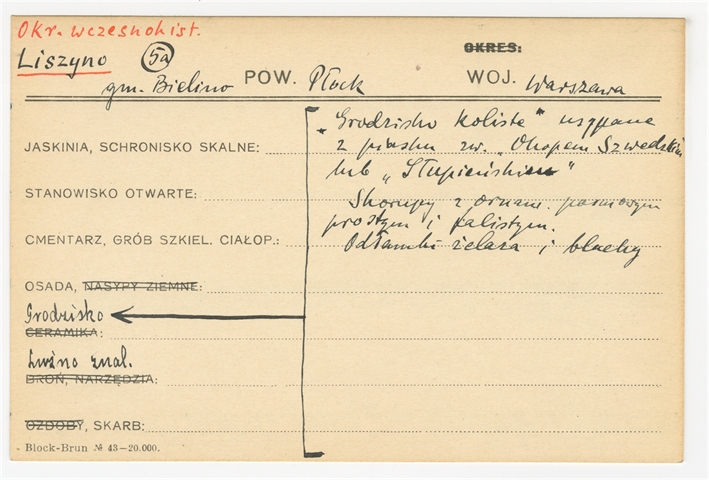 Okr. wczesnohist.
Liszyno 5a
OKRES:
gm. Bielino POW. Płock WOJ. Warszawa
JASKINIA, SCHRONISKO SKALNE:
STANOWISKO OTWARTE:
CMENTARZ, GRÓB SZKIEL. CIAŁOP.:
OSADA, NASYPY ZIEMNE:
Grodzisko
CERAMIKA:
Luźno znal.
BROŃ, NARZĘDZIA:
OZDOBY, SKARB:
Block-Brun № 43—20.000.
„Grodzisko koliste" usypane
z piasku zw. „Okopem Szwedzkim
lub „Słupieńskim"
Skorupy z ornam. pasmowym
prostym i falistym.
Odłamki żelaza i blachy